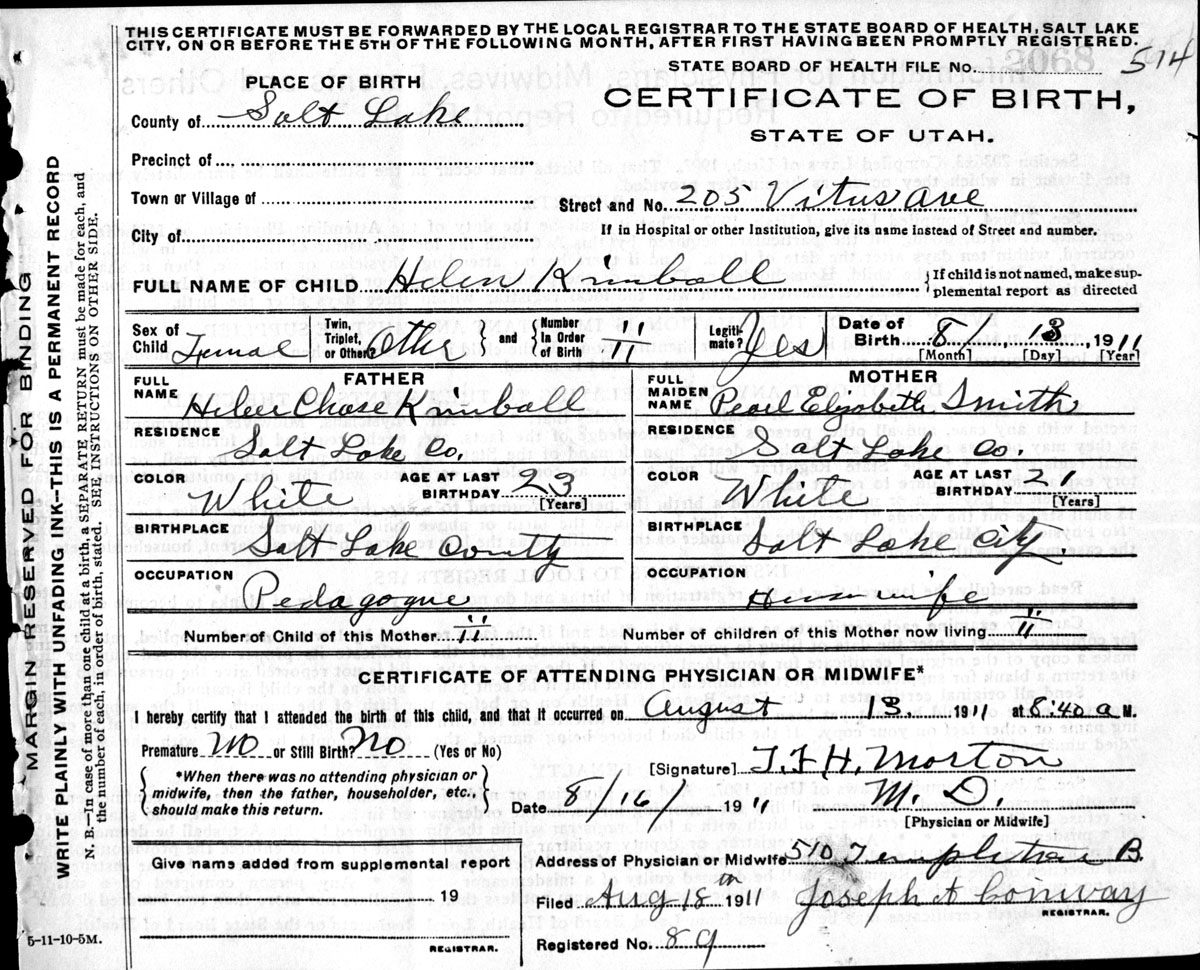 THIS CERTIFICATE MUST BE FORWARDED BY THE LOCAL REGISTRAR TO THE STATE BOARD OF HEALTH, SALT LAKE
CITY, ON OR BEFORE THE 5TH OF THE FOLLOWING MONTH, AFTER FIRST HAVING BEEN PROMPTLY REGISTERED.
STATE BOARD OF HEALTH FILE No. 574
PLACE OF BIRTH
CERTIFICATE OF BIRTH,
County of Salt Lake
STATE OF UTAH.
Precinct of
Town or Village of
Street and No. 205 Vitus Ave
City of
If in Hospital or other Institution, give its name instead of Street and number.
FULL NAME OF CHILD Helen Kimball
{If child is not named, make sup-
plemental report as directed
Sex of Child Female
Twin, Triplet, or Other? Other } and { Number In Order of Birth II
Legiti-mate? Yes
Date of Birth 8 / 13, 1911
[Month] [Day] [Year]
FATHER
FULL NAME Heber Chase Kimball
MOTHER
FULL MAIDEN NAME Pearl Elizabeth Smith
RESIDENCE Salt Lake Co.
RESIDENCE Salt Lake Co.
COLOR White AGE AT LAST BIRTHDAY 23 [Years]
COLOR White AGE AT LAST BIRTHDAY [Years]
BIRTHPLACE Salt Lake County
BIRTHPLACE Salt Lake City
OCCUPATION Pedagogue
OCCUPATION Housewife
Number of Child of this Mother II
Number of children of this Mother now living II
CERTIFICATE OF ATTENDING PHYSICIAN OR MIDWIFE*
I hereby certify that I attended the birth of this child, and that it occurred on August 13 1911 at 6:40 a M.
Premature No or Still Birth? No (Yes or No)
{ *When there was no attending physician or
midwife, then the father, householder, etc.,
should make this return. }
[Signature] T.F.H. Morton
Date 8/16/ 1911 M. D.
[Physician or Midwife]
Give name added from supplemental report
Address of Physician or Midwife 510 Templeton B.
19
Filed Aug 18th 1911 Joseph A Conway
REGISTRAR.
REGISTRAR.
Registered No. 89
5-11-10-5M.
MARGIN RESERVED FOR BINDING
WRITE PLAINLY WITH UNFADING INK—THIS IS A PERMANENT RECORD
N. B.—In case of more than one child at a birth, a SEPARATE RETURN must be made for each, and
the number of each, in order of birth, stated. SEE INSTRUCTIONS ON OTHER SIDE.